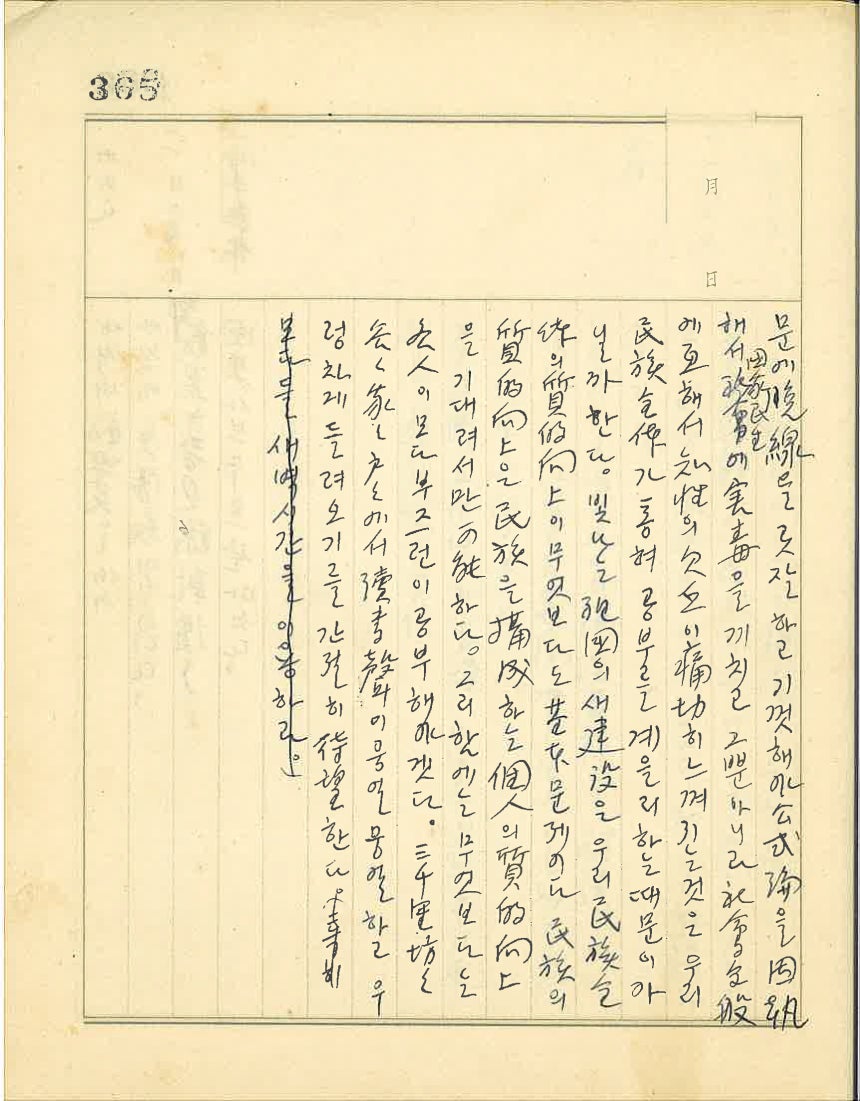 365
月
日
문에 脫線을 곳잘 하고 기껏해야 公式論을 固執
해서 國家民生에 害毒을 끼치고 그뿐아니라 社會全般
에 亘해서 知性의 欠乏이 痛切히 느껴지는것은 우리
民族全体가 통혀 공부를 게을리 하는 때문이 아
닐까 한다. 빛나는 祖國의 새 建設은 우리 民族全
体의 質的向上이 무엇보다도 基本문제이다 民族의
質的向上은 民族을 構成하는 個人의 質的向上
을 기대려서만 可能하다。그러함에는 무엇보다는
各人이 모다 부즈런이 공부해야겟다。三千里坊〻
谷〻 家〻 戶〻에서 讀書聲이 웅얼웅얼하고 우
렁차게 들려오기를 간절히 待望한다
모다들 새벽시간을 이용하라。」